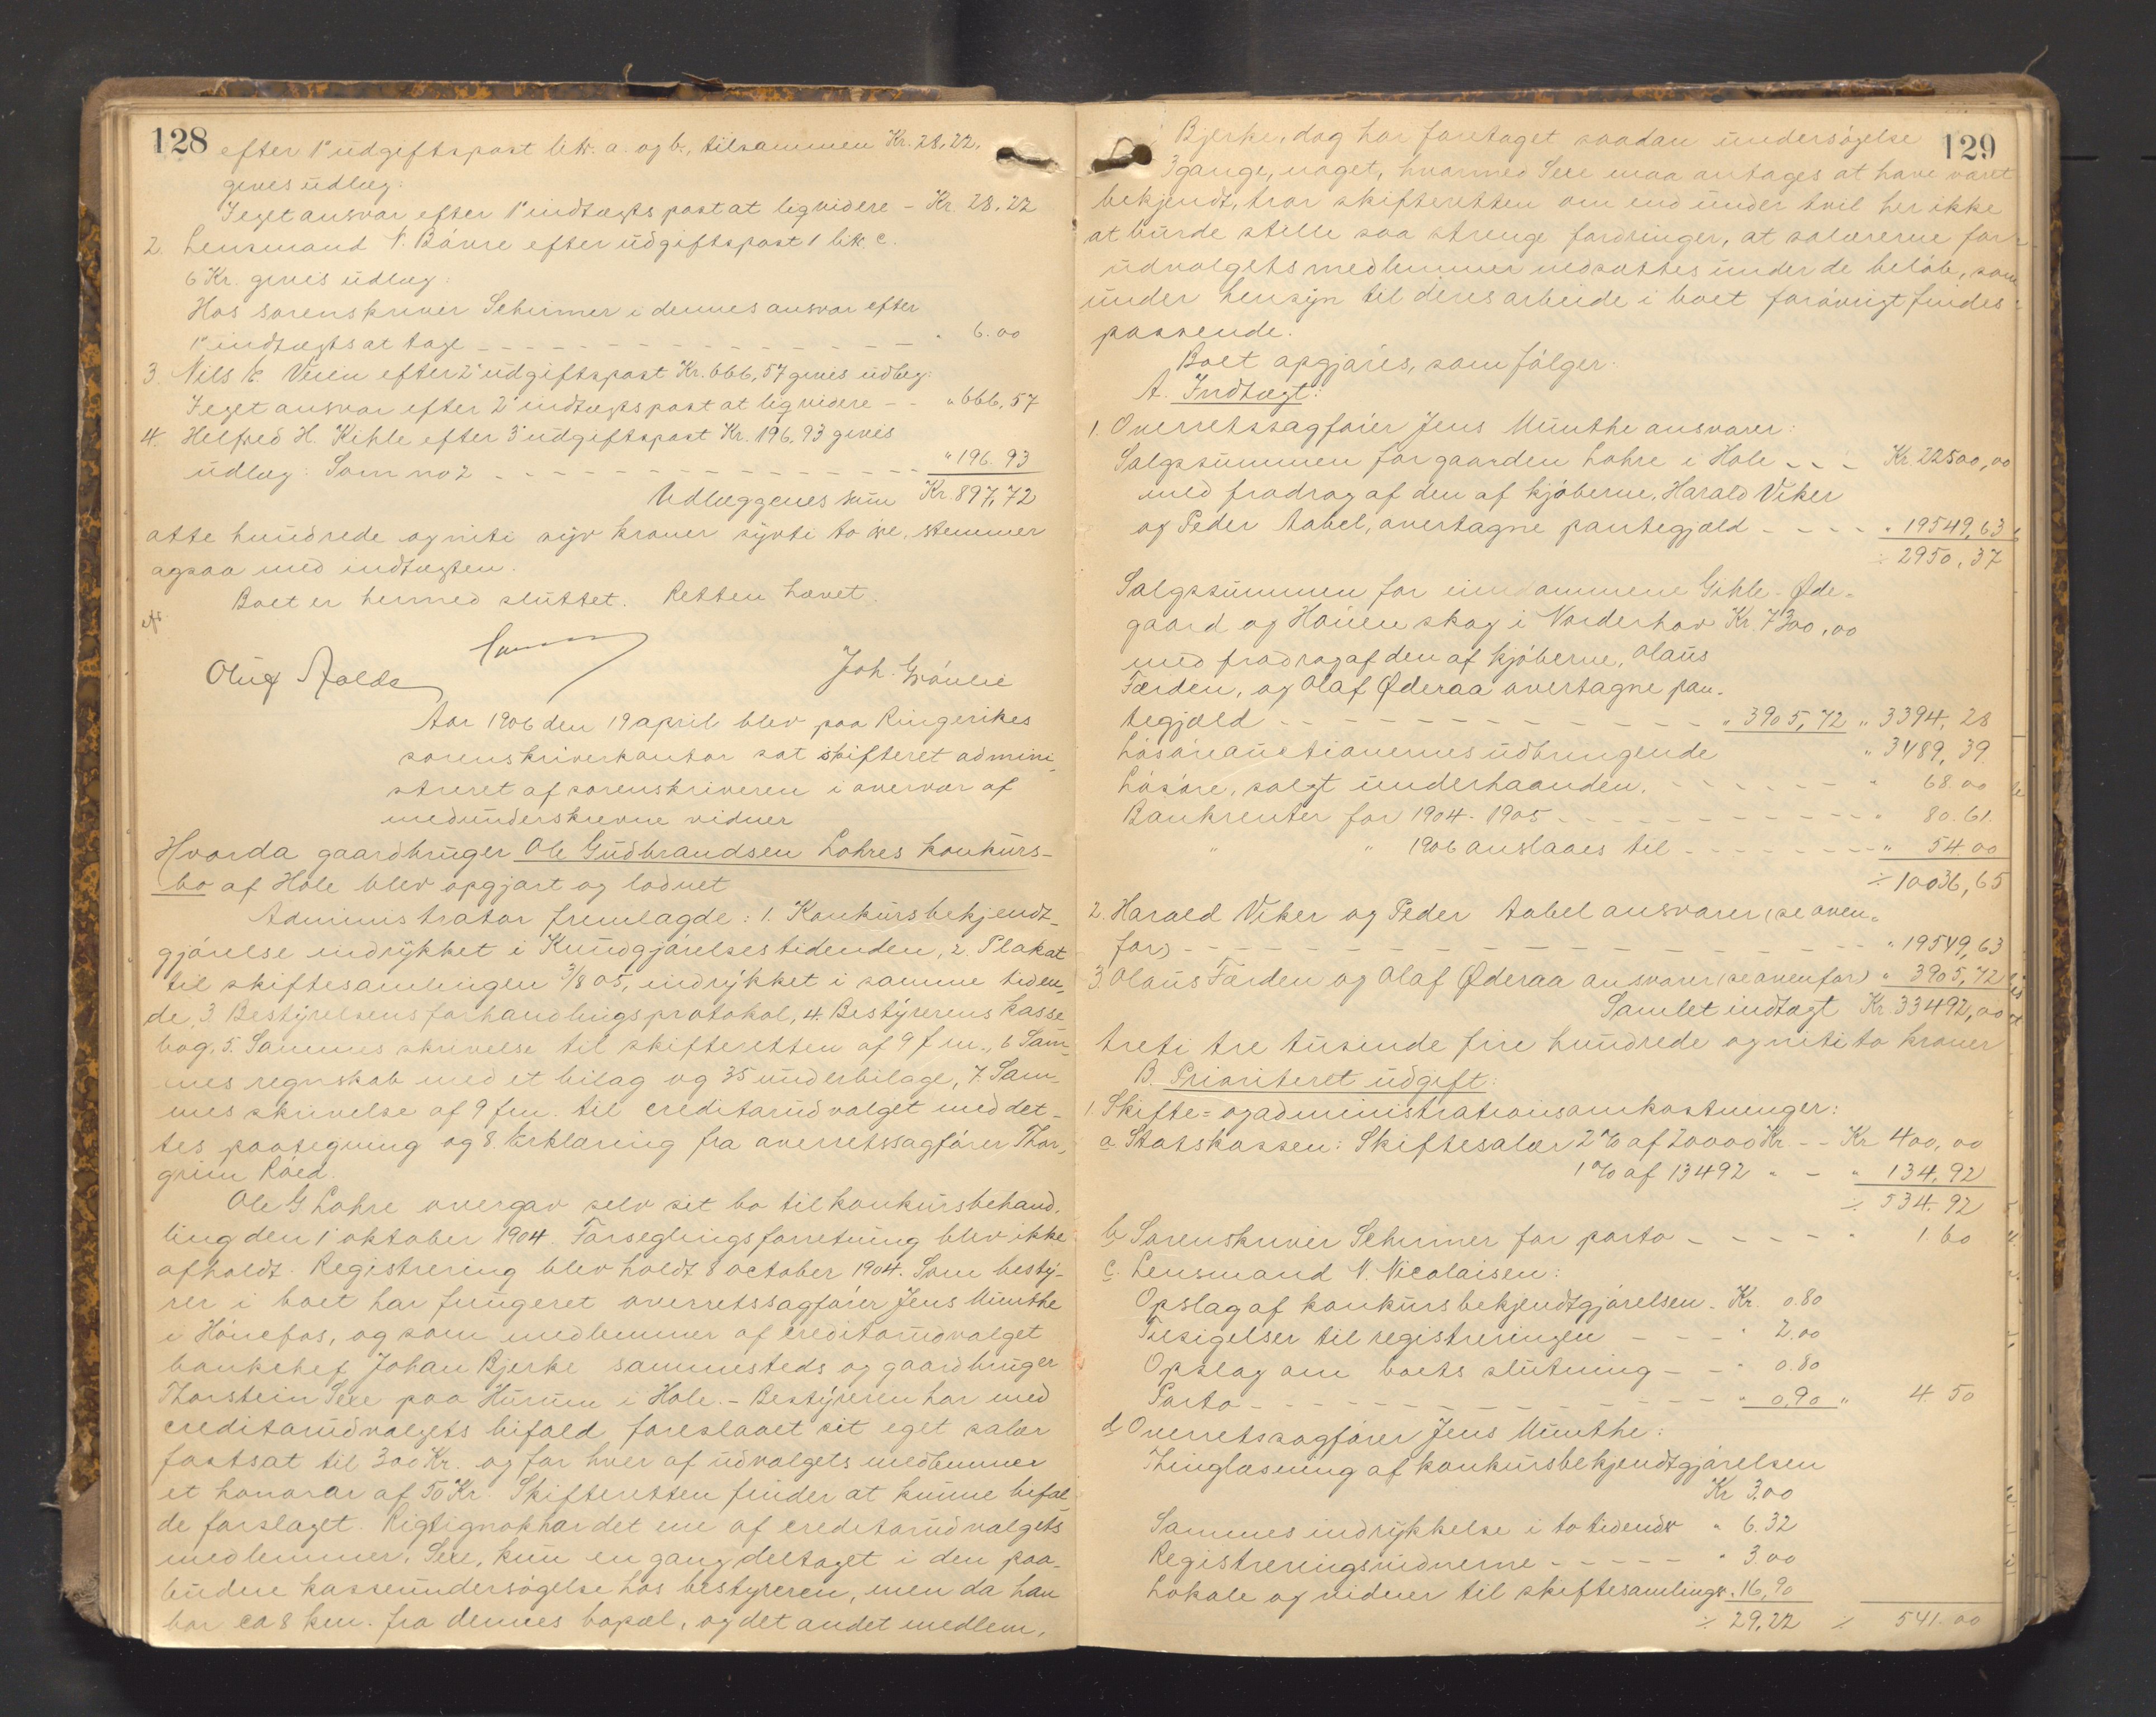 128
efter 1ᵉ udgiftspost litr. a. og b., tilsammen Kr. 28,22,
gives udlæg:
I eget ansvar efter 1ᵉ indtægtspost at ligvidere - Kr. 28,22
2. Lensmand N. Bårre efter udgiftspost 1 litr. c.
6 Kr. gives udlæg:
Hos sorenskriver Schirmer i dennes ansvar efter
1ᵉ indtægts at tage " 6.00
3. Nils K. Veien efter 2ᵉ udgiftspost Kr. 666,57 gives udlæg:
I eget ansvar efter 2ᵉ indtægtspost at ligvidere - - " 666,57
4. Helfred H. Kihle efter 3ᵉ udgiftspost Kr. 196,93 gives
udlæg: Som no 2 " 196.93
Udlæggenes sum Kr. 897,72
otte hundrede og niti syv kroner sytti to øre, stemmer
ogsaa med indtægten.
Boet er hermed sluttet. Retten hævet.
Oluf Aalde
Joh. Grönlie
Aar 1906 den 19 april blev paa Ringerikes
sorenskriverkontor sat skifteret admini-
streret af sorenskriveren i overvær af
medunderskrevne vidner
Hvorda gaardbruger Ole Gudbrandsen Lohres konkurs-
bo af Hole blev opgjort og lodnet
Administrator fremlagde: 1. Konkursbekjendt-
gjørelse indrykket i Kundgjørelsestidenden, 2. Plakat
til skiftesamlingen 3/8 05, indrykket i samme tiden-
de, 3. Bestyrelsens forhandlingsprotokol, 4. Bestyrerens kasse
bog, 5. Sammes skrivelse til skifteretten af 9 f m., 6 Sam-
mes regnskab med et bilag og 35 underbilage, 7. Sam-
mes skrivelse af 9 f m. til creditorudvalget med det-
tes paategning og 8. Erklæring fra overretssagfører Thor-
grim Röed.
Ole G Lohre overgav selv sit bo til konkursbehand-
ling den 1 oktober 1904. Forseglingsforretning blev ikke
afholdt. Registrering blev holdt 8 october 1904. Som besty-
rer i boet har fungeret overretssagfører Jens Munthe
i Hönefos, og som medlemmer af creditorudvalget
bankchef Johan Bjerke sammesteds og gaardbruger
Thorstein Sexe paa Hurum i Hole. - Bestyreren har med
creditorudvalgets bifald foreslaaet sit eget salær
fastsat til 300 Kr. og for hver af udvalgets medlemmer
et honorar af 50 Kr. Skifteretten finder at kunne bifal-
de forslaget. Rigtignok har det ene af creditorudvalgets
medlemmer, Sexe, kun en gang deltaget i den paa-
budne kasseundersøgelse hos bestyreren, men da han
bor ca 8 km. fra dennes bopæl, og det andet medlem,
129
Bjerke, dog har foretaget saadan undersøgelse
3 gange, noget, hvormed Sexe maa antages at have været
bekjendt, tror skifteretten om end under tvil her ikke
at burde stille saa strenge fordringer, at salærerne for
udvalgets medlemmer nedsættes under de beløb, som
under hensyn til deres arbeide i boet forøvrigt findes
passende.
Boet opgjøres, som følger:
A. Indtægt:
1. Overretssagfører Jens Munthe ansvarer:
Salgssummen for gaarden Lohre i Hole - - - Kr. 22500,00
med fradrag af den af kjøberne, Harald Viker
og Peder Aabel, overtagne pantegjæld - - - - " 19549,63
÷ 2950,37
Salgssummen for eiendommene Gihle-Øde-
gaard og Höuenskog i Norderhov Kr. 7300,00
med fradrag af den af kjøberne, Olaus
Færden, og Olaf Øderaa overtagne pan-
tegjæld " 3905,72 " 3394,28
Løsøreauctionernes udbringende " 3489,39
Løsøre, solgt underhaanden. " 68.00
Bankrenter for 1904-1905 " 80.61.
" " 1906 anslaaes til " 54.00
÷ 10036,65
2. Harald Viker og Peder Aabel ansvarer (se oven-
for) " 19549,63
3. Olaus Færden og Olaf Øderaa ansvarer (se ovenfor) " 3905,72
Samlet indtægt Kr 33492,00
treti tre tusinde fire hundrede og niti to kroner
B. Prioriteret udgift:
1. Skifte- og administrationsomkostninger:
a. Statskassen: Skiftesalær 2 % af 20000 Kr - - Kr 400,00
1 % af 13492 " - " 134,92
÷ 534.92
b. Sorenskriver Schirmer for porto " 1.60
c. Lensmand N. Nicolaisen:
Opslag af konkursbekjendtgjørelsen - Kr. 0.80
Tilsigelser til registreringen - - - " 2.00
Opslag om boets slutning - - " 0.80
Porto " 0,90 " 4.50
d. Overretssagfører Jens Munthe:
Thinglæsning af konkursbekjendtgjørelsen
Kr 3.00
Sammes indrykkelse i to tidender " 6.32
Registreringsvidnerne " 3.00
Lokale og vidner til skiftesamlinge " 16,90
÷ 29,22 ÷ 541.00